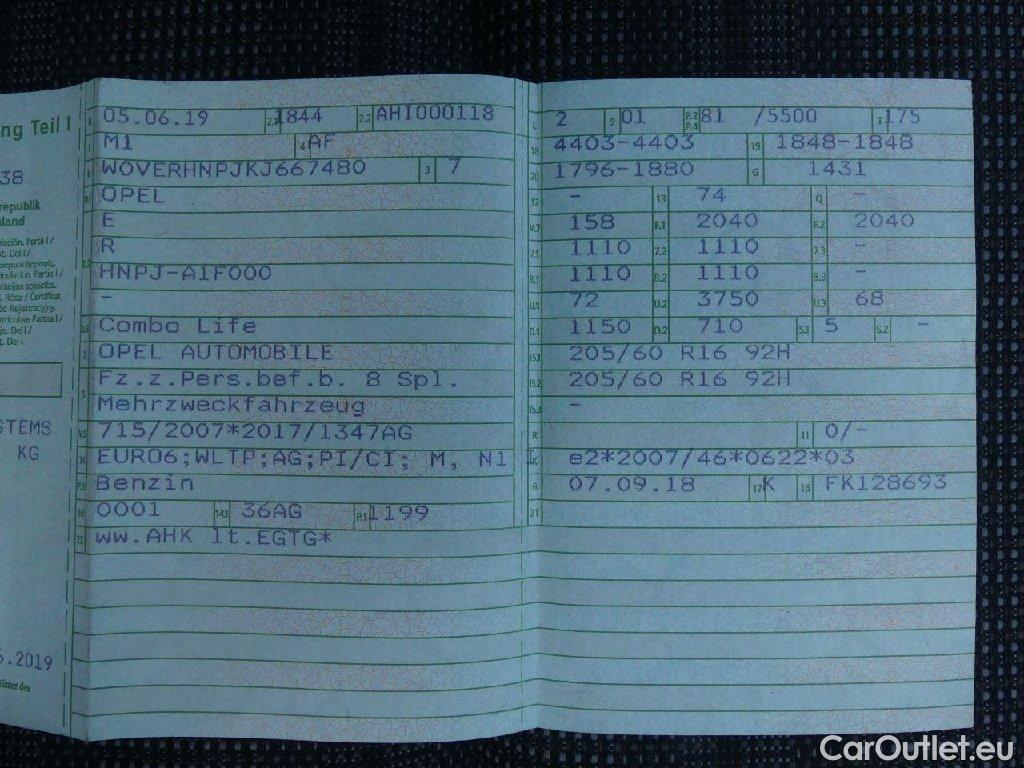 ng Teil I
38
republik
land
TEMS
KG
.2019
05.06.19 2.1 1844 2.2 AHI000118
M1 4 AF
W0VERHNPJKJ667480 3 7
OPEL
E
R
HNPJ-A1F000
-
Combo Life
OPEL AUTOMOBILE
Fz.z.Pers.bef.b. 8 Spl.
Mehrzweckfahrzeug
715/2007*2017/1347AG
EURO6;WLTP;AG;PI/CI; M, N1 I
Benzin
0001 14.1 36AG P.1 1199
22 ww.AHK lt.EGTG*
L 2 9 01 P.2 P.4 81 /5500 T 175
18 4403-4403 19 1848-1848
20 1796-1880 G 1431
12 - 13 74 Q -
V.7 158 F.1 2040 F.2 2040
7.1 1110 7.2 1110 7.3 -
8.1 1110 8.2 1110 8.3 -
U.1 72 U.2 3750 U.3 68
O.1 1150 O.2 710 S.1 5 S.2 -
15.1 205/60 R16 92H
15.2 205/60 R16 92H
15.3 -
R 11 0/-
K e2*2007/46*0622*03
6 07.09.18 17 K 16 FK128693
21
CarOutlet.eu